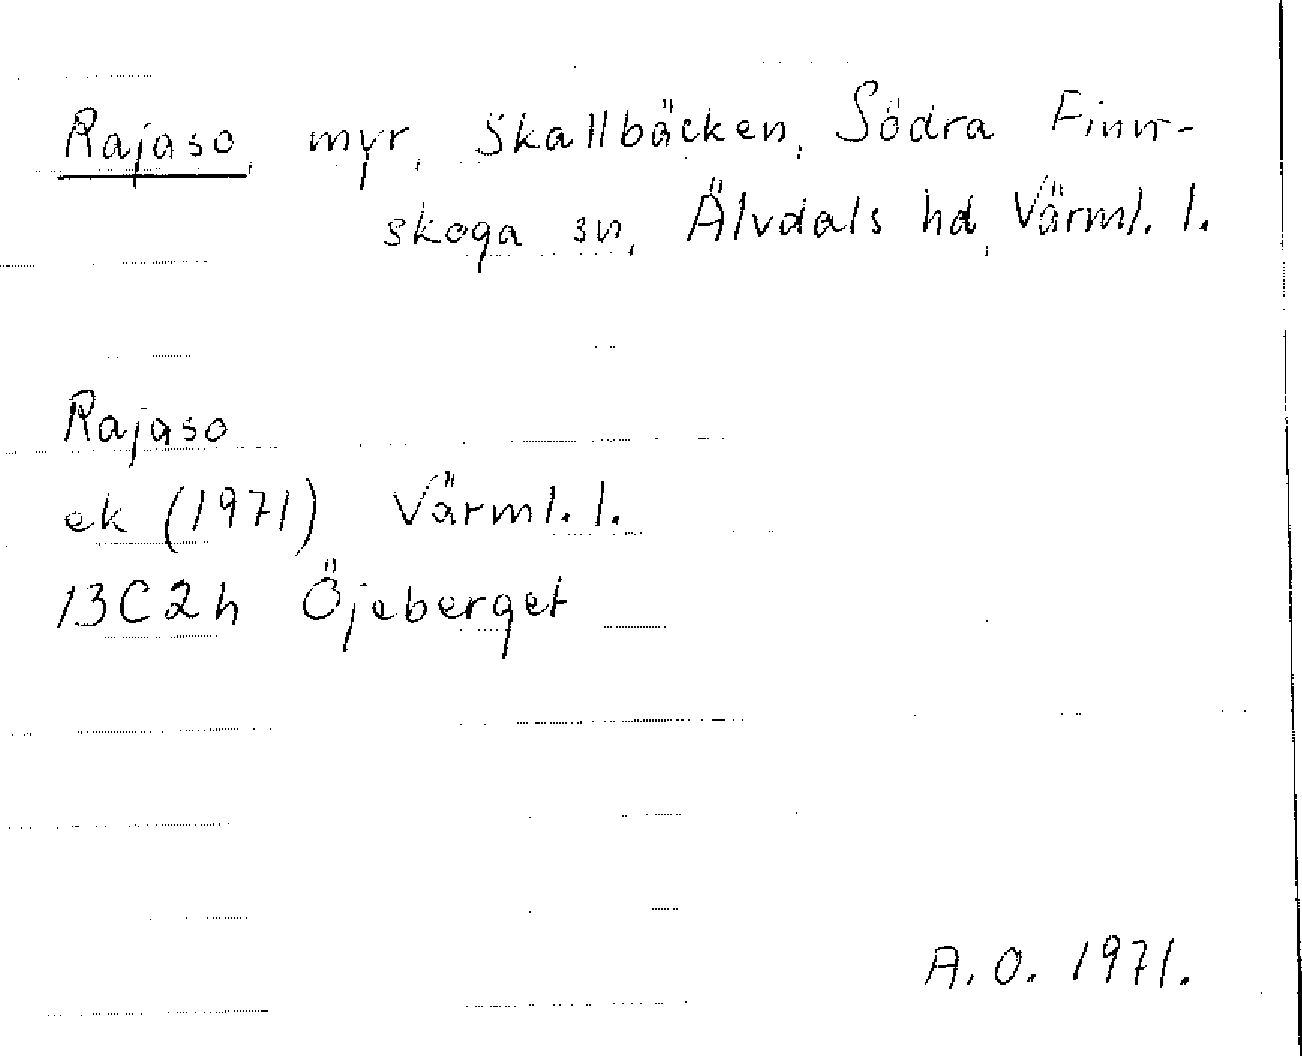 Rajaso, myr, Skallbäcken, Södra Finn-
skoga sn, Älvdals hd, Värml. l.
Rajaso
ek (1971) Värml. l.
13C2h Öjeberget
A.O. 1971.